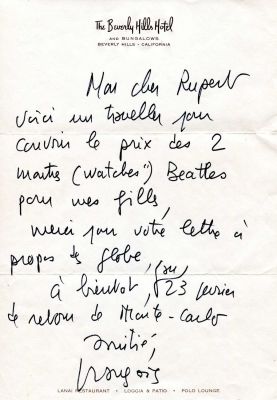 The Beverly Hills Hotel
AND BUNGALOWS
BEVERLY HILLS · CALIFORNIA
Mon cher Rupert
voici un traveller pour
couvrir le prix des 2
montres (watches") Beatles
pour mes filles,
merci pour votre lettre à
propos de globe,
à bientôt, (au 23 fevrier
de retour de Monte-Carlo
amitié,
François
LANAI RESTAURANT · LOGGIA & PATIO · POLO LOUNGE